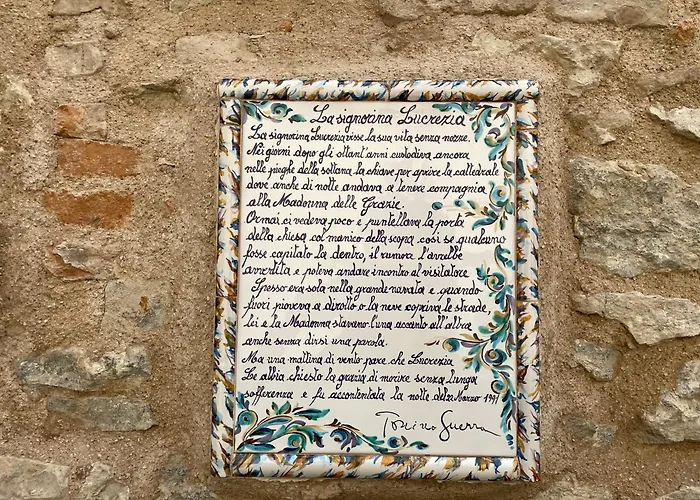 La signorina Lucrezia
La signorina Lucrezia visse la sua vita senza nozze.
Nei giorni dopo gli ottant'anni custodiva ancora
nelle pieghe della sottana la chiave per aprire la cattedrale
dove anche di notte andava a tenere compagnia
alla Madonna delle Grazie.
Ormai ci vedeva poco e puntellava la porta
della chiesa col manico della scopa così se qualcuno
fosse capitato là dentro, il rumore l'avrebbe
avvertita e poteva andare incontro al visitatore
Spesso era sola nella grande navata e quando
fuori pioveva a dirotto o la neve copriva le strade,
lei e la Madonna stavano l'una accanto all'altra
anche senza dirsi una parola.
Ma una mattina di vento pare che Lucrezia
Le abbia chiesto la grazia di morire senza lunga
sofferenza e fu accontentata la notte del 2 Marzo 1991
Tonino Guerra